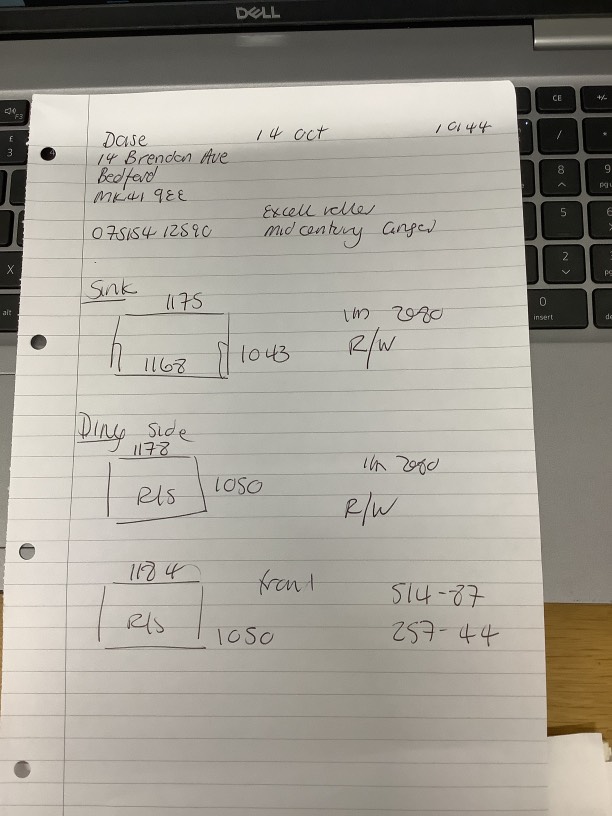 DELL
14 oct 10144
14 Brendon Ave
Bedford
MK41 9EE
Excell
075154 12590 mid century
Sink
1175
1168
1043
1m 2080
R/W
Diny side
1178
R/S
1050
1m 2080
R/W
1184
front
R/S
1050
514-87
257-44
F3
£
3
X
alt
CE
+/-
/
8
9
5
6
2
0
insert